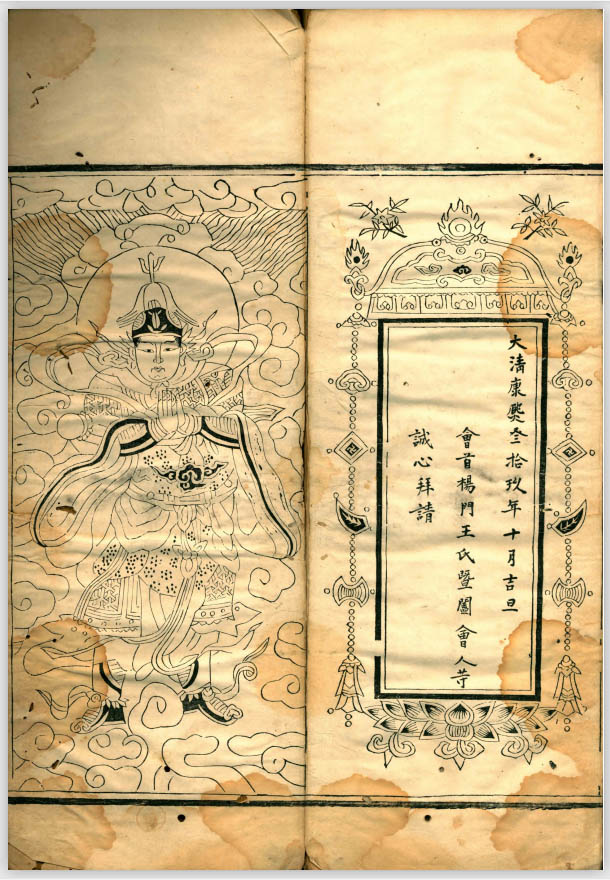 大清康熙叁拾玖年十月吉旦
會首楊門王氏暨闔會人等
誠心拜請